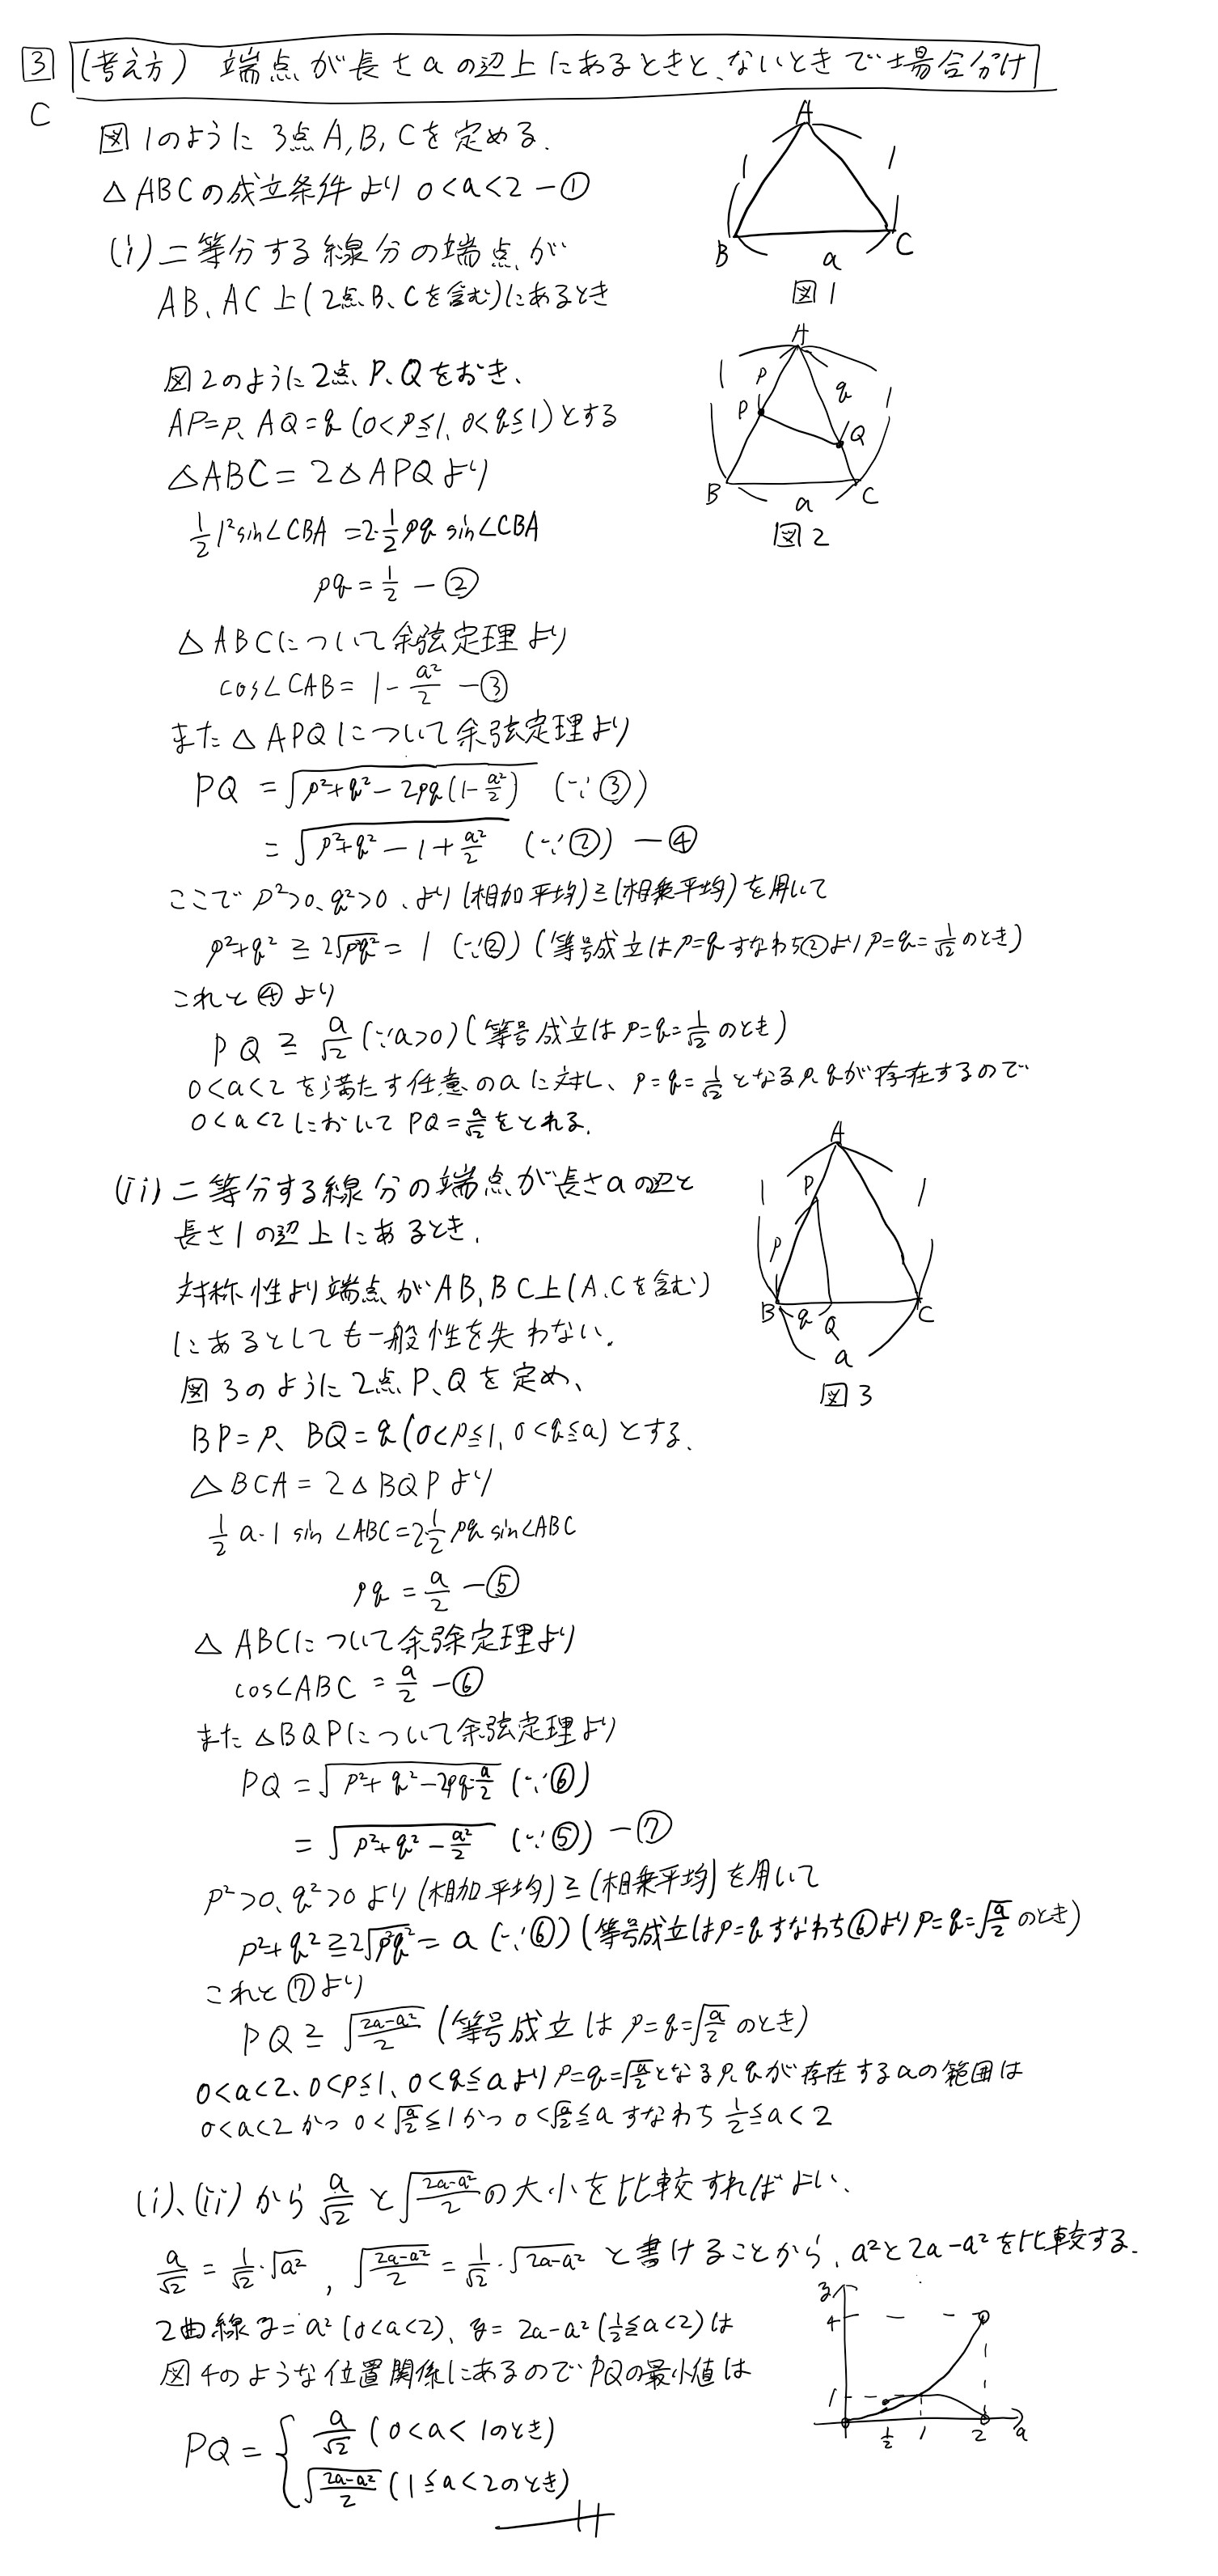 3 (考え方) 端点が長さaの辺上にあるときと、ないときで場合分け
C
図1のように3点A,B,Cを定める.
△ABCの成立条件より 0<a<2 −①
(i)二等分する線分の端点が
AB、AC上(2点B、Cを含む)にあるとき
A
1
1
B
a
C
図1
図2のように2点P、Qをおき、
AP=p、AQ=q (0<p≦1、0<q≦1)とする
△ABC=2△APQより
1/2 1² sin∠CBA = 2・1/2 pq sin∠CBA
pq = 1/2 −②
A
1
p
q
1
P
Q
B
a
C
図2
△ABCについて余弦定理より
cos∠CAB = 1 − a²/2 −③
また△APQについて余弦定理より
PQ = √(p²+q²−2pq(1−a²/2)) (∵③)
= √(p²+q²−1+a²/2) (∵②) −④
ここでp²>0、q²>0、より(相加平均)≧(相乗平均)を用いて
p²+q² ≧ 2√(p²q²) = 1 (∵②) (等号成立はp=qすなわち②よりp=q=1/√2のとき)
これと④より
PQ ≧ a/√2 (∵a>0) (等号成立はp=q=1/√2のとき)
0<a<2を満たす任意のaに対し、p=q=1/√2となるp、qが存在するので
0<a<2においてPQ=a/√2をとれる.
(ii)二等分する線分の端点が長さaの辺と
長さ1の辺上にあるとき.
対称性より端点がAB,BC上(A、Cを含む)
にあるとしても一般性を失わない.
図3のように2点P、Qを定め、
BP=p、BQ=q(0<p≦1、0<q≦a)とする.
A
P
1
1
p
B
q
Q
C
a
図3
△BCA=2△BQPより
1/2 a・1 sin∠ABC = 2・1/2 pq sin∠ABC
pq = a/2 −⑤
△ABCについて余弦定理より
cos∠ABC = a/2 −⑥
また△BQPについて余弦定理より
PQ = √(p²+q²−2pq・a/2) (∵⑥)
= √(p²+q²−a²/2) (∵⑤) −⑦
p²>0、q²>0より(相加平均)≧(相乗平均)を用いて
p²+q² ≧ 2√(p²q²) = a (∵⑥) (等号成立はp=qすなわち⑥よりp=q=√(a/2)のとき)
これと⑦より
PQ ≧ √((2a−a²)/2) (等号成立はp=q=√(a/2)のとき)
0<a<2、0<p≦1、0<q≦aよりp=q=√(a/2)となるp、qが存在するaの範囲は
0<a<2かつ0<√(a/2)≦1かつ0<√(a/2)≦aすなわち1/2≦a<2
(i)、(ii)からa/√2と√((2a−a²)/2)の大小を比較すればよい.
a/√2 = 1/√2・√a², √((2a−a²)/2) = 1/√2・√(2a−a²) と書けることから、a²と2a−a²を比較する.
2曲線y=a²(0<a<2)、y=2a−a²(1/2≦a<2)は
図4のような位置関係にあるのでPQの最小値は
PQ = { a/√2 (0<a<1のとき)
√((2a−a²)/2) (1≦a<2のとき)
y
4
1
1/2
1
2
a